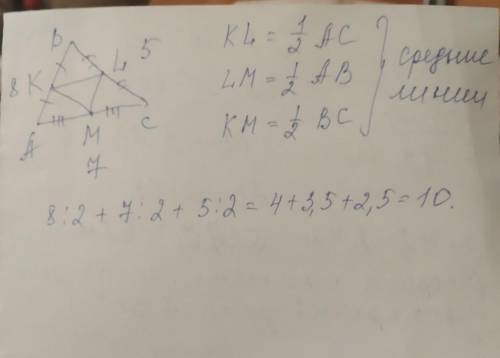 B
5
L
8
K
A
M
C
7
KL = 1/2 AC
LM = 1/2 AB
KM = 1/2 BC
средние
линии
8:2 + 7:2 + 5:2 = 4+3,5+2,5=10.